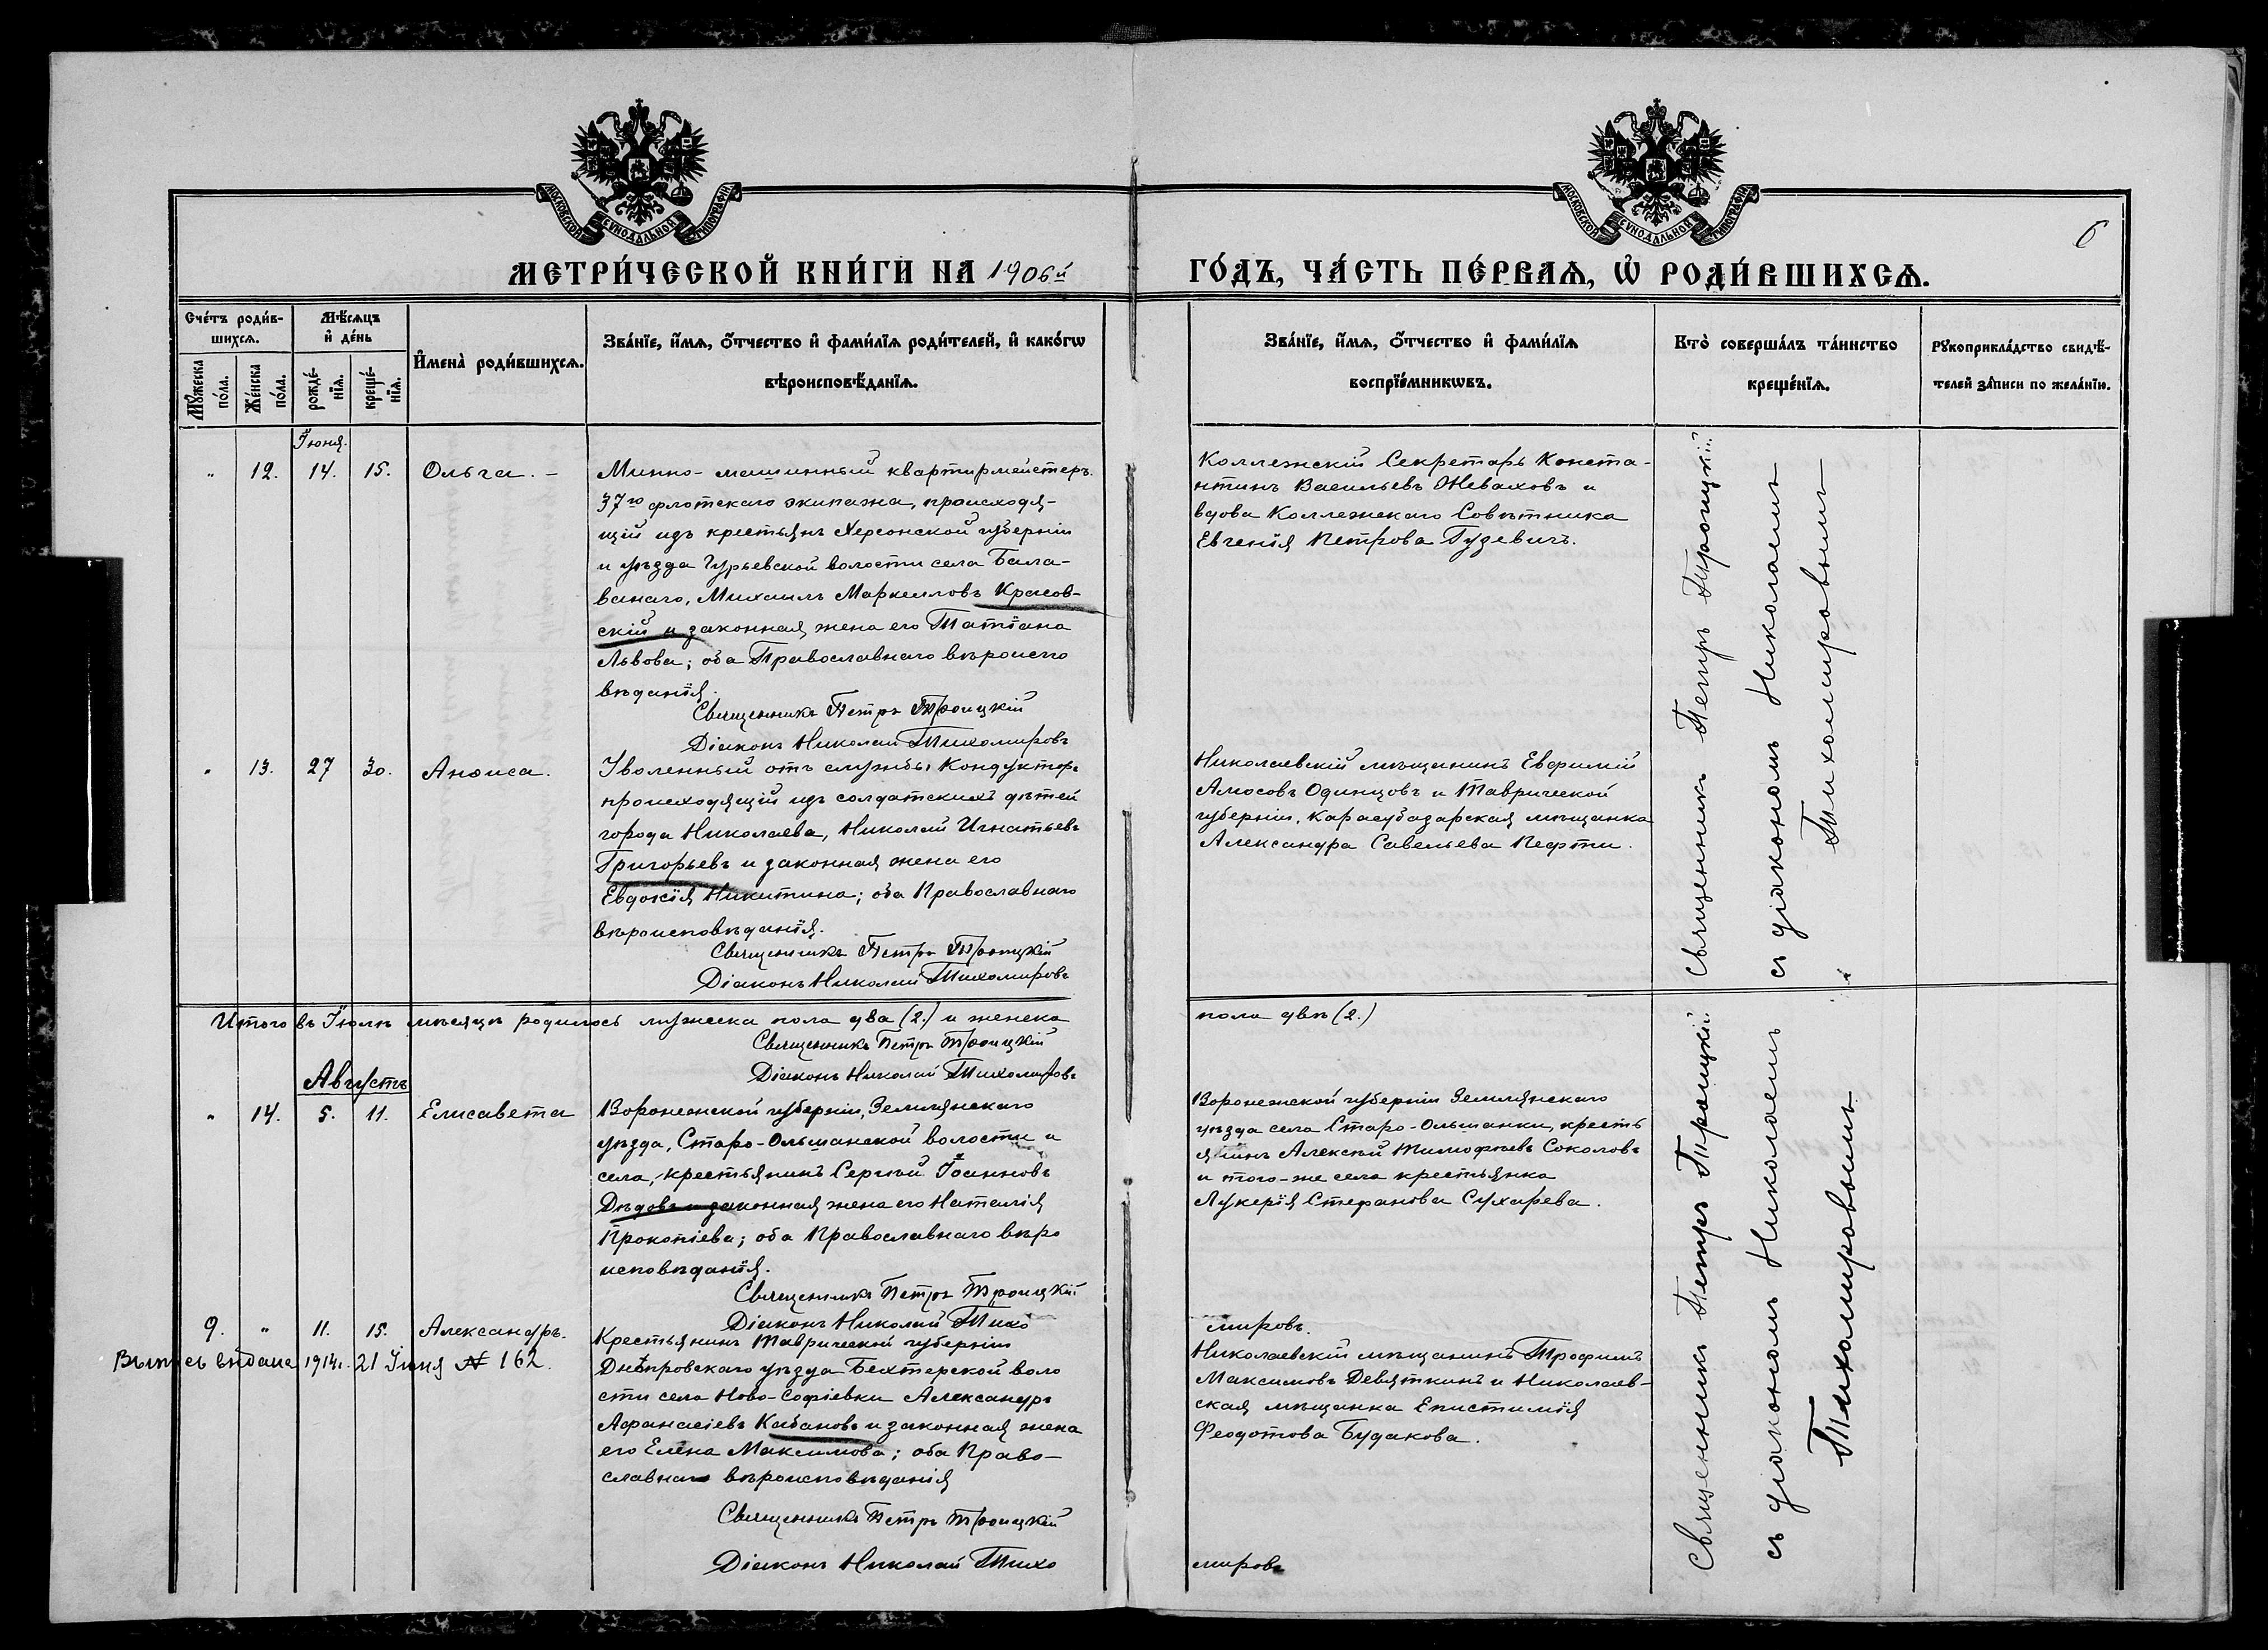 МОСКОВСКОЙ СѴНОДАЛЬНОЙ ТИПОГРАФІИ
МОСКОВСКОЙ СѴНОДАЛЬНОЙ ТИПОГРАФІИ
6
МЕТРИ́ЧЕСКОЙ КНИ́ГИ НА 1906й ГО́ДЪ, ЧА́СТЬ ПЕ́РВАѦ, Ѡ҆ РОДИ́ВШИХСѦ.
Сче́тъ роди́в-
шихсѧ.
Мѣ́сѧцъ
и҆ де́нь
Мꙋ́жеска
по́ла.
Же́нска
по́ла.
рожде́-
нїѧ.
креще́-
нїѧ.
И҆мена̀ роди́вшихсѧ.
Зва́нїе, и҆́мѧ, ѻ҆́тчество и҆ фами́лїѧ роди́телей, и҆ како́гѡ
вѣроисповѣ́данїѧ.
Зва́нїе, и҆́мѧ, ѻ҆́тчество и҆ фами́лїѧ
воспрїе́мникѡвъ.
Кто̀ соверша́лъ та́инство
креще́нїѧ.
Рꙋкоприкла́дство свидѣ́-
телей за́писи по жела́нїю.
Іюня.
" 12. 14. 15. Ольга. –
Минно-машинный квартирмейстеръ
37го флотскаго экипажа, происходя-
щій изъ крестьянъ Херсонской губерніи
и уѣзда Гурьевской волости села Бала-
банаго, Михаилъ Маркелловъ Красов-
скій и законная жена его Татіана
Львова; оба Православнаго вѣроиспо
вѣданія.
Священникъ Петръ Троицкій
Діаконъ Николай Тихомировъ
Коллежскій Секретарь Конста-
нтинъ Васильевъ Жеваховъ и
вдова Коллежскаго Совѣтника
Евгенія Петрова Гудевичъ.
" 13. 27 30. Анѳиса.
Уволенный отъ службы Кондукторъ
происходящій изъ солдатскихъ дѣтей
города Николаева, Николай Игнатьевъ
Григорьевъ и законная жена его
Евдокія Никитина; оба Православнаго
вѣроисповѣданія.
Священникъ Петръ Троицкій
Діаконъ Николай Тихомировъ
Николаевскій мѣщанинъ Евфимій
Амосовъ Одинцовъ и Таврической
губерніи, Карасубазарская мѣщанка
Александра Савельева Нефти.
Священникъ Петръ Троицкій
съ діакономъ Николаемъ
Тихомировымъ
Итого въ Іюлѣ мѣсяцѣ родилось мужеска пола два (2.) и женска пола двѣ (2.)
Священникъ Петръ Троицкій
Діаконъ Николай Тихомировъ
Августъ
" 14. 5. 11. Елисавета
Воронежской губерніи, Землянскаго
уѣзда, Старо-Ольшанской волости и
села, крестьянинъ Сергѣй Іоанновъ
Дѣдовъ и законная жена его Наталія
Прокопіева; оба Православнаго вѣро
исповѣданія.
Священникъ Петръ Троицкій
Діаконъ Николай Тихо
мировъ.
Воронежской губерніи Землянскаго
уѣзда села Старо-Ольшанки, кресть
янинъ Алексѣй Тимофеевъ Соколовъ
и того-же села крестьянка
Лукерія Стефанова Сухарева.
9. " 11. 15. Александръ.
Выпись выдана 1914г. 21 Іюня № 162.
Крестьянинъ Таврической губерніи
Днѣпровскаго уѣзда Бехтерской воло
сти села Ново-Софіевки Александръ
Афанасіевъ Кабановъ и законная жена
его Елена Максимова; оба Право-
славнаго вѣроисповѣданія
Священникъ Петръ Троицкій
Діаконъ Николай Тихо
мировъ
Николаевскій мѣщанинъ Трофимъ
Максимовъ Девяткинъ и Николаев-
ская мѣщанка Епистимія
Феодотова Будакова.
Священникъ Петръ Троицкій
съ діакономъ Николаемъ
Тихомировымъ